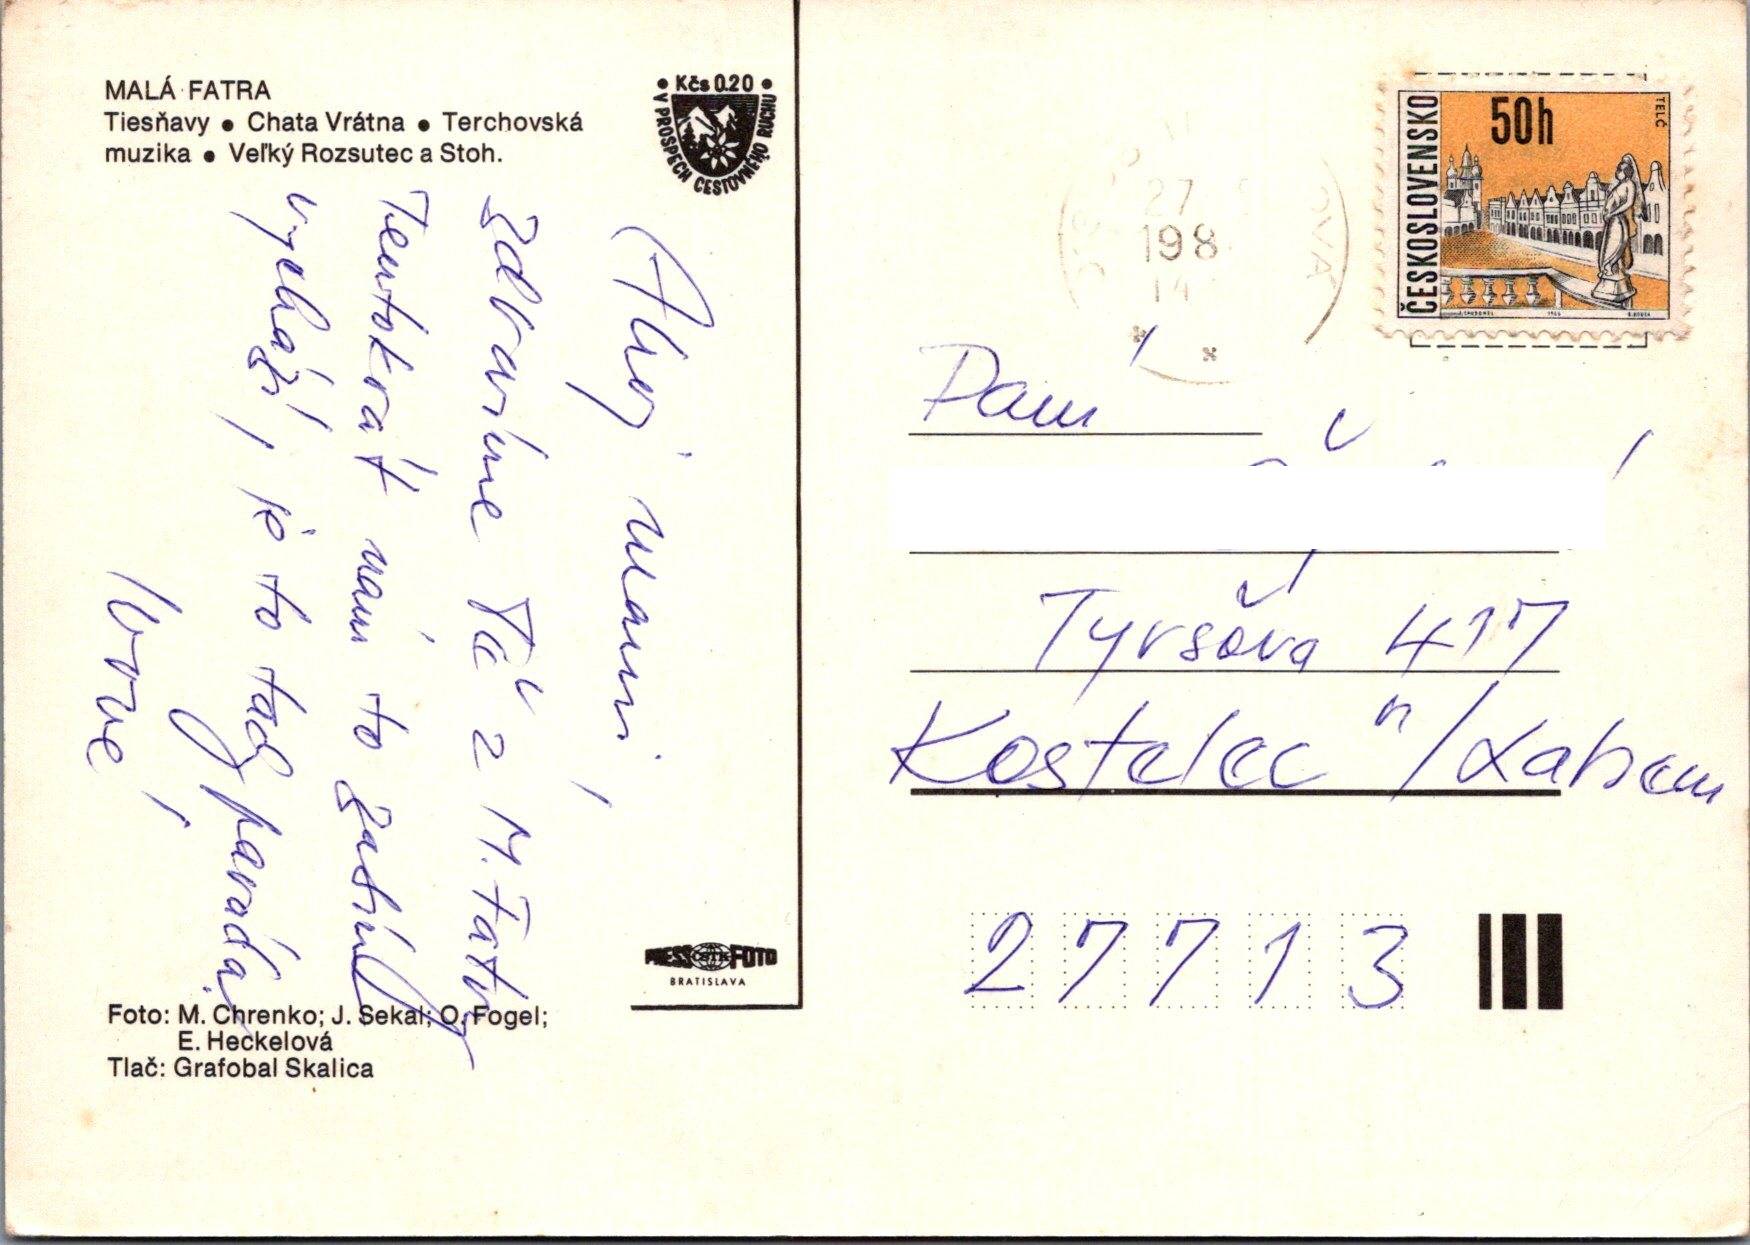 MALÁ FATRA
Tiesňavy ● Chata Vrátna ● Terchovská
muzika ● Veľký Rozsutec a Stoh.
• Kčs 0.20 •
V PROSPECH CESTOVNÉHO RUCHU
Ahoj mami,
zdravíme Tě z M. Fatry
Tentokrát nám to
vychází, je to tady paráda.
PRESS ČSTK FOTO
BRATISLAVA
Foto: M. Chrenko; J. Sekal; O. Fogel;
E. Heckelová
Tlač: Grafobal Skalica
27
198
14
OVÁ
ČESKOSLOVENSKO
50h
TELČ
1966
Paní
Tyršova 417
Kostelec n/Labem
27713